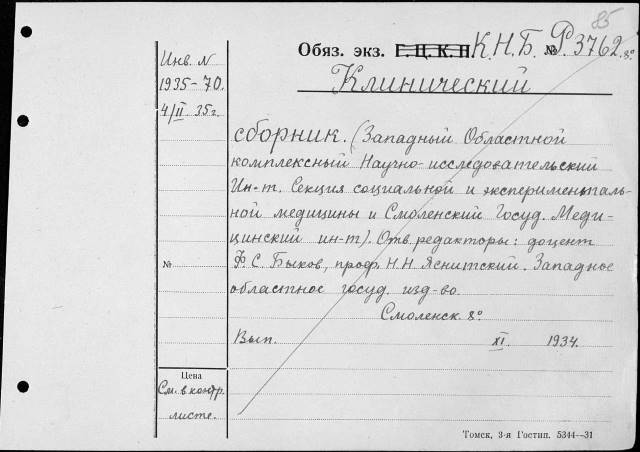 85
Инв. N
1935-70.
4/II 35г.
Обяз. экз. Г. Ц. К. П. К.Н.Б. № Р.3762. 8º
Клинический
сборник. (Западный Областной
комплексный Научно-исследовательский
Ин-т. Секция социальной и эксперименталь-
ной медицины и Смоленский Госуд. Меди-
цинский ин-т). Отв. редакторы: доцент
Ф. С. Быков, проф. Н.Н. Яснитский. Западное
областное госуд. изд-во.
Смоленск. 8º
Вып. XI. 1934.
№
Цена
См. в контр.
листе.
Томск, 3-я Гостип. 5344—31